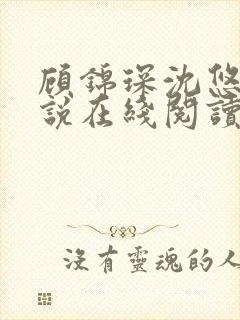 顾锦琛沈悠
说在綫閱讀
沒有靈魂的人